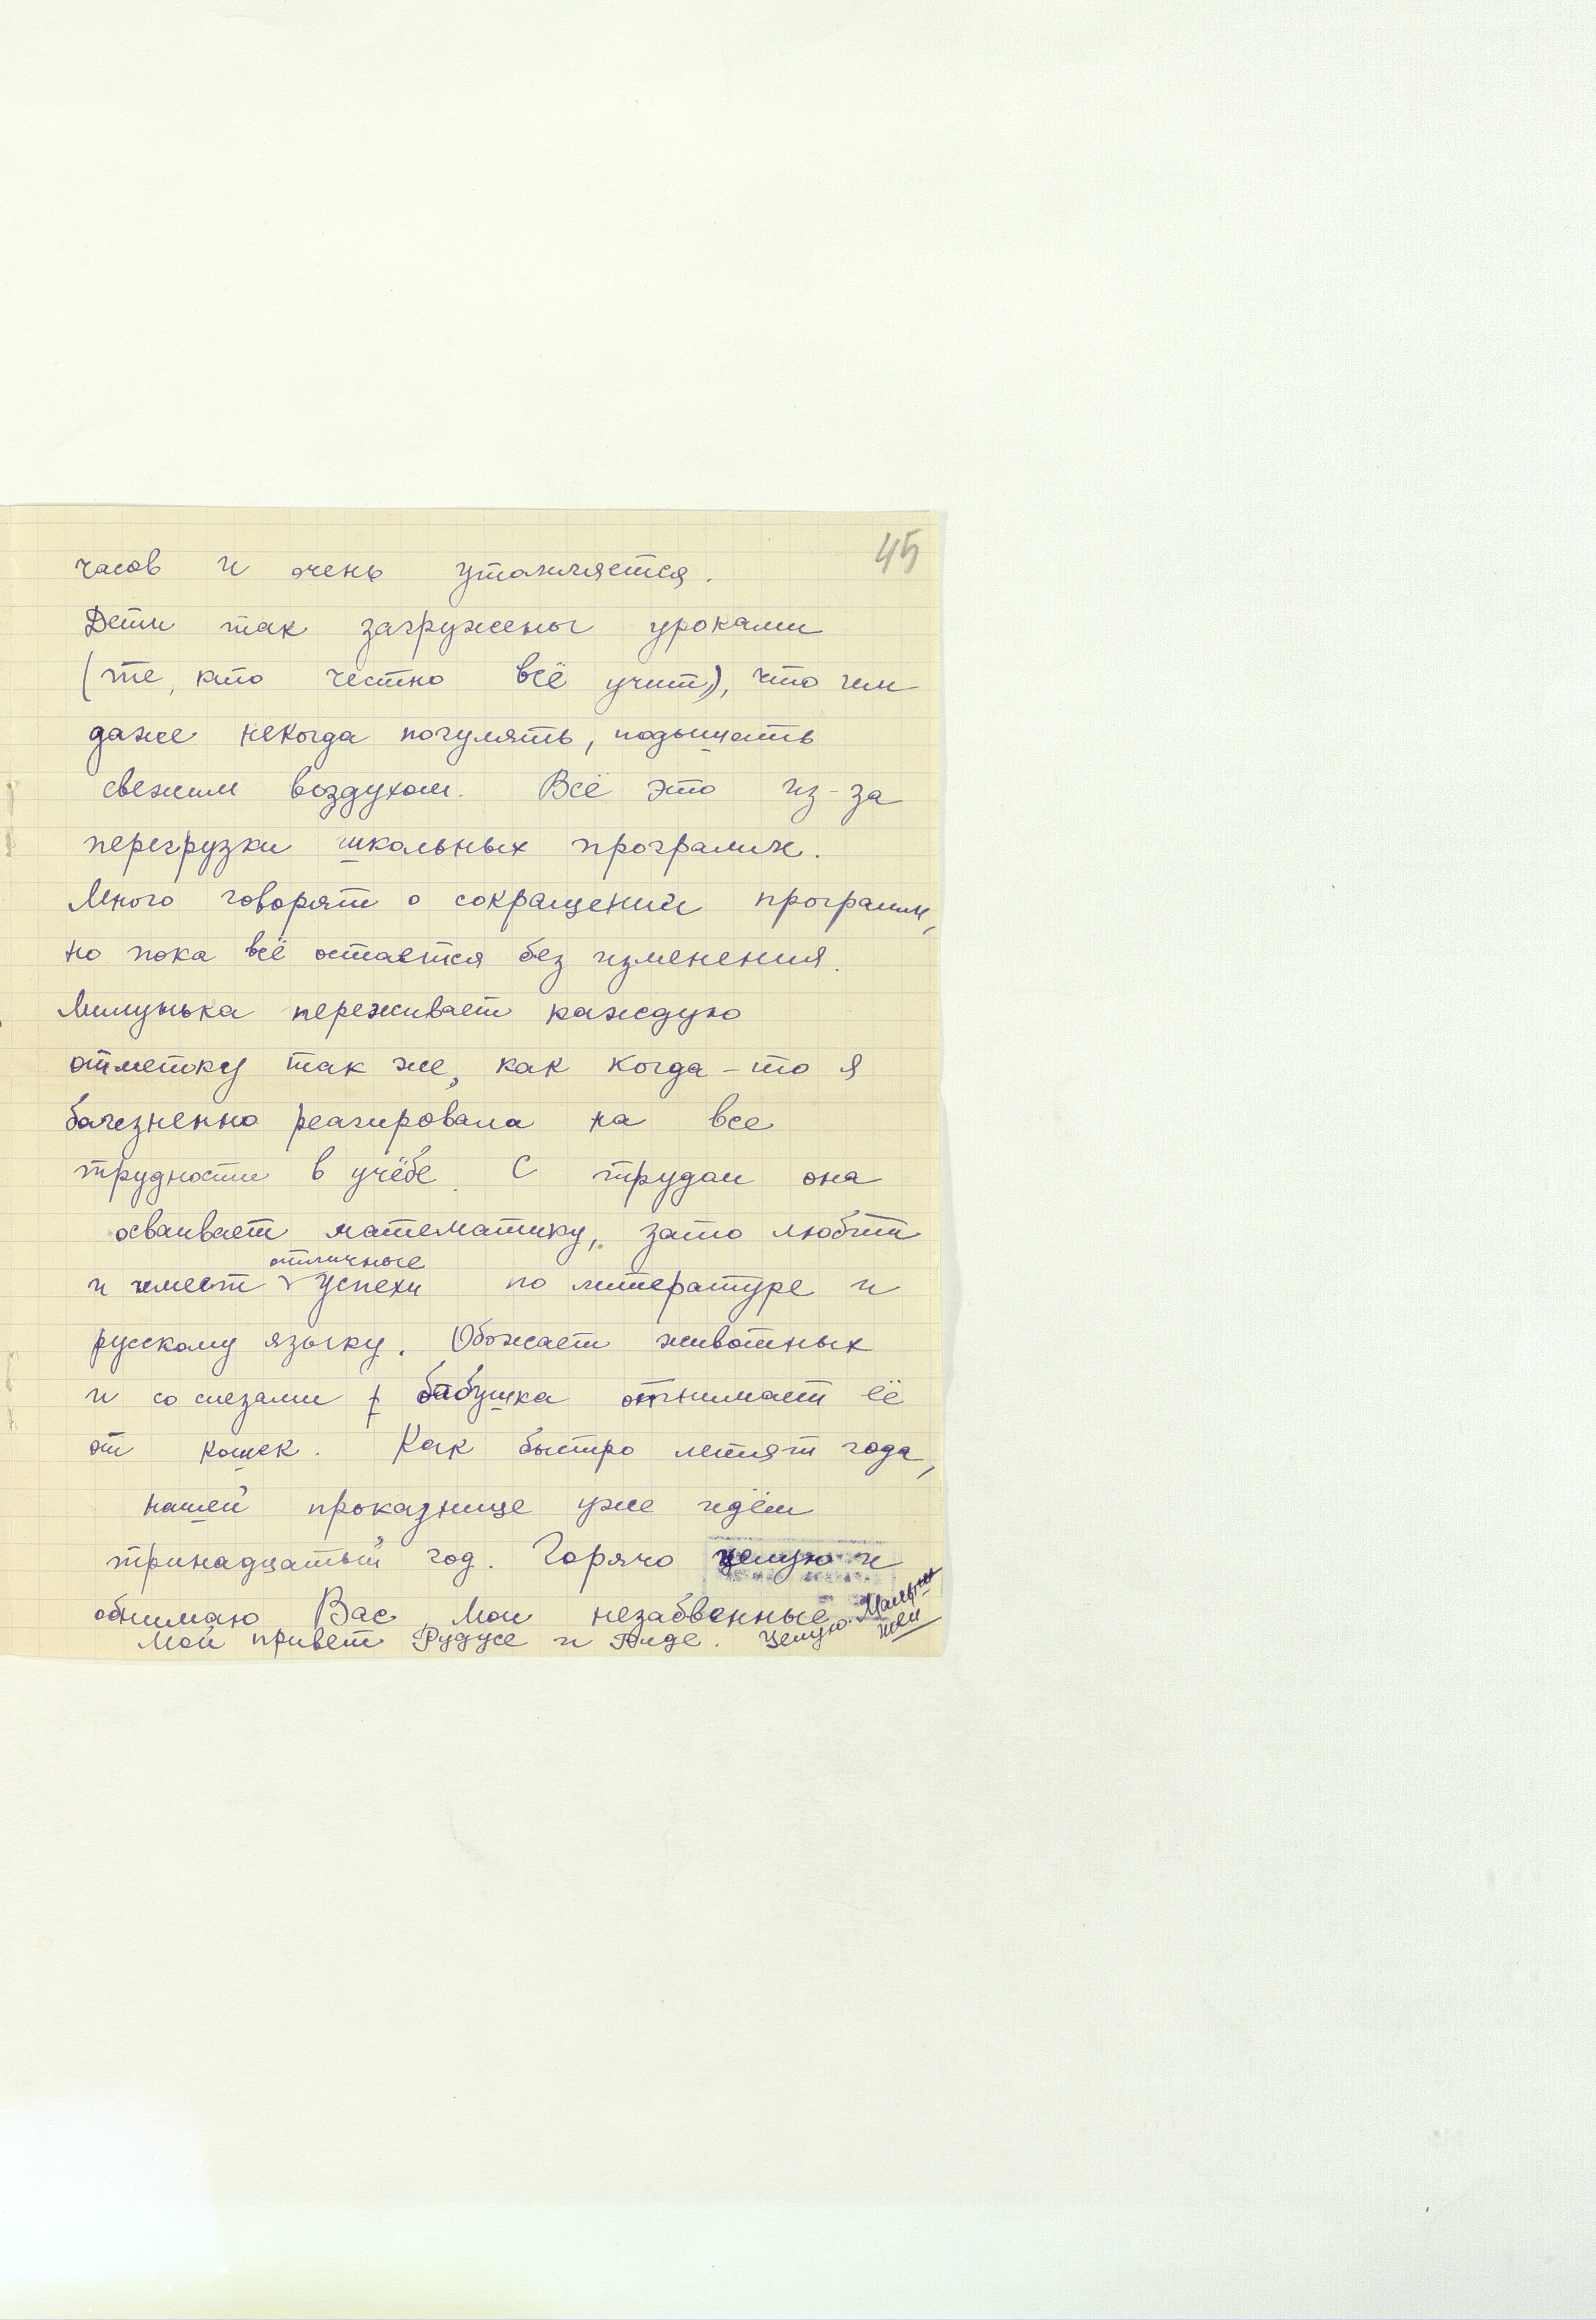 45
часов и очень утомляется.
Дети так загружены уроками
(те, кто честно всё учит), что им
даже некогда погулять, подышать
свежим воздухом. Всё это из-за
перегрузки школьных программ.
Много говорят о сокращении программ,
но пока всё остаётся без изменения.
Милунька переживает каждую
отметку так же, как когда-то я
болезненно реагировала на все
трудности в учёбе. С трудом она
осваивает математику, зато любит
отличные
и имеет успехи по литературе и
русскому языку. Обожает животных
и со слезами бабушка отнимает её
от кошек. Как быстро летят года,
нашей проказнице уже идёт
тринадцатый год. Горячо целую и
обнимаю Вас, мои незабвенные
Мой привет Рудусе и Аиде. Целую